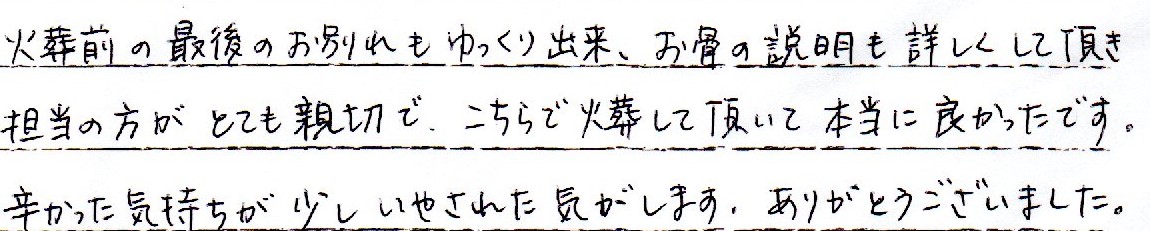 火葬前の最後のお別れもゆっくり出来、お骨の説明も詳しくして頂き
担当の方がとても親切で、こちらで火葬して頂いて本当に良かったです。
辛かった気持ちが少しいやされた気がします。ありがとうございました。